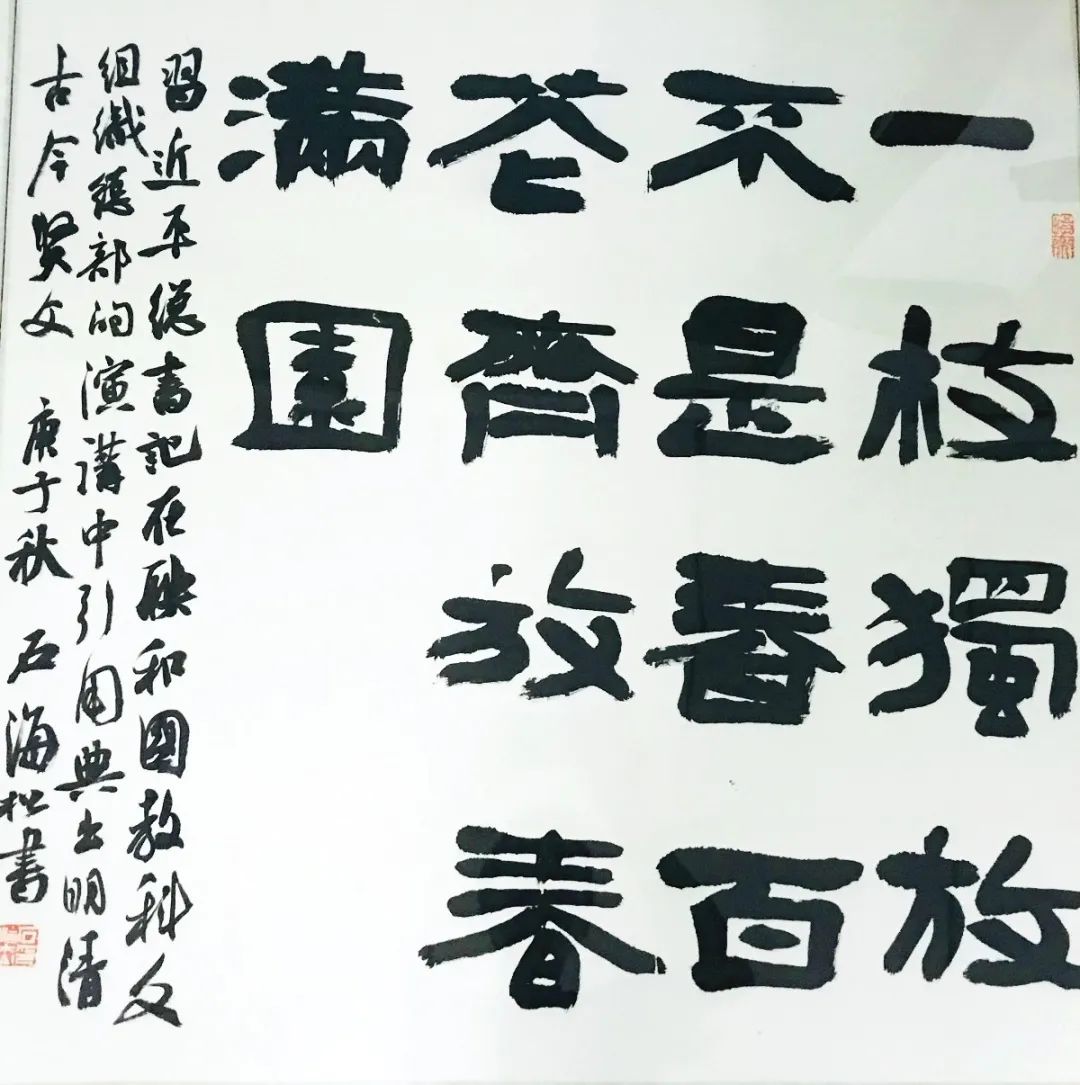 一枝獨放
不是春百
花齊放春
滿園
習近平總書記在联和國教科文
組織總部的演講中引用典出明清
古今賢文 庚子秋 石海松書